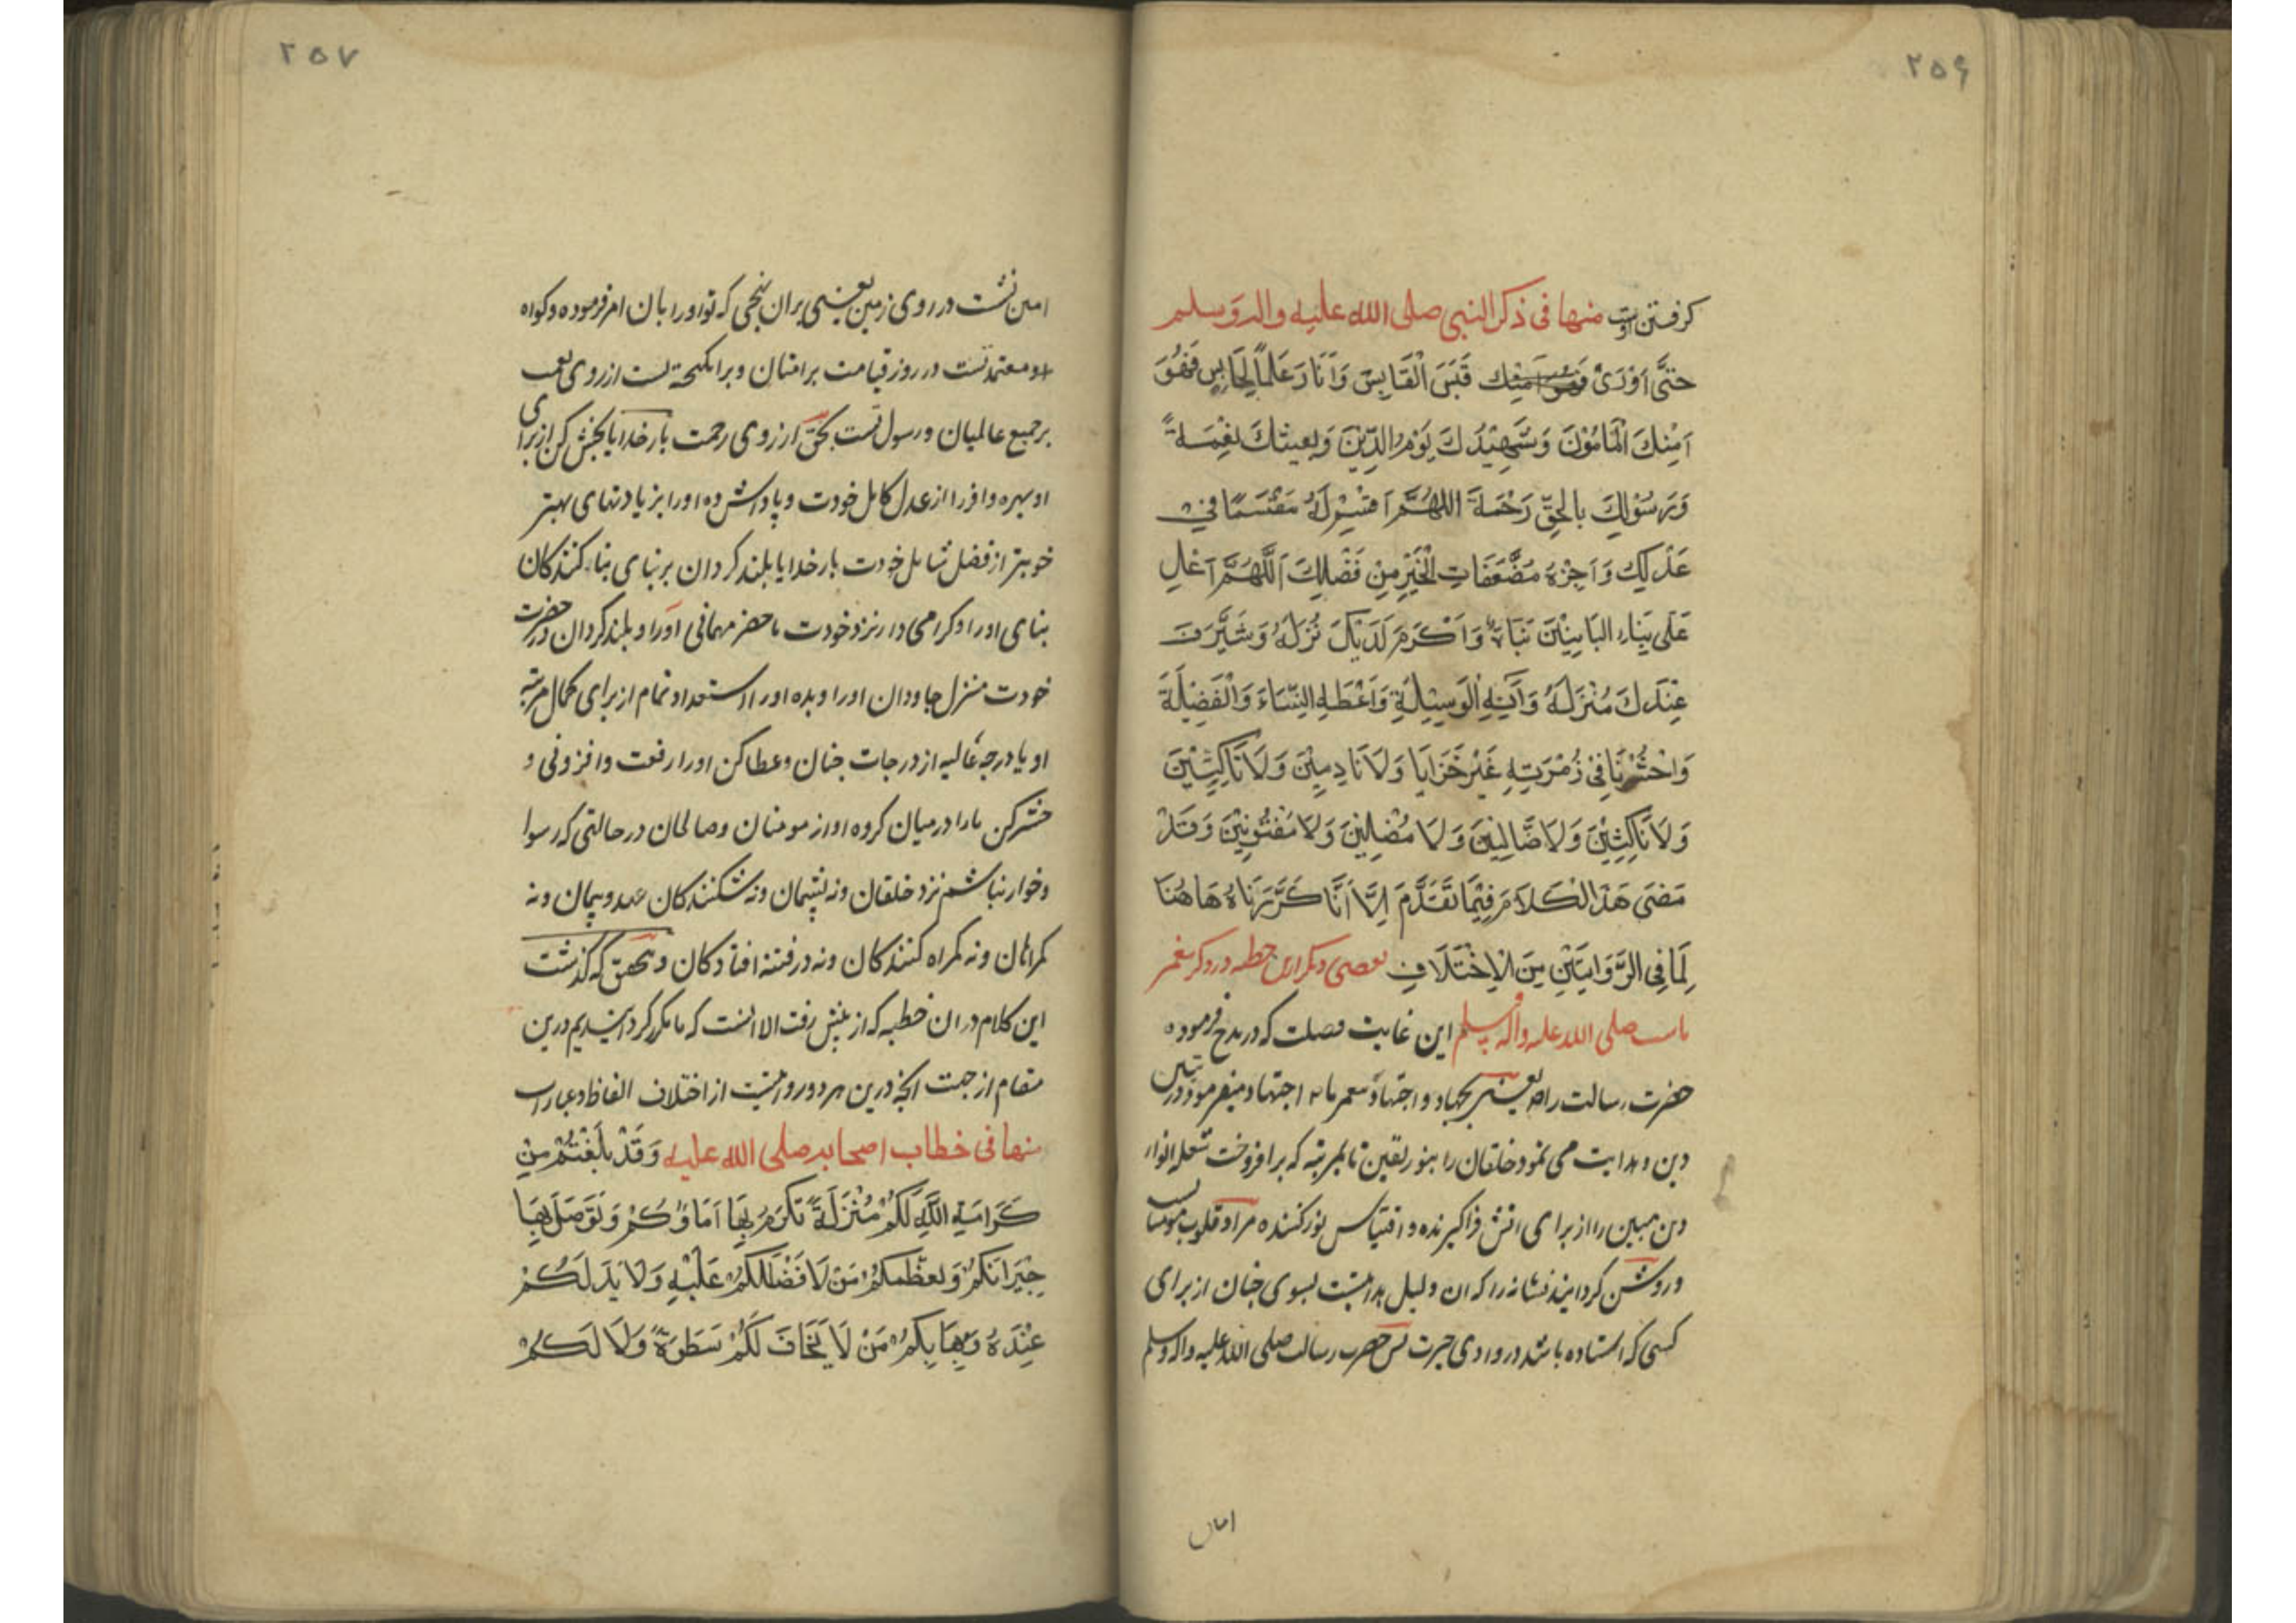 ۲۵۶
کرفتن اوست منها فی ذکر النبی صلی الله علیه واله وسلم
حَتّٰی اَوْرَیٰ قَبَسَ الْقَابِسِ وَاَنَارَ عَلَمًا لِحَابِسٍ فَهُوَ
اَمِیْنُكَ الْمَامُوْنُ وَشَهِیْدُكَ یَوْمَ الدِّیْنَ وَبَعِیثُكَ نِعْمَةً
وَرَسُوْلُكَ بِالْحَقِّ رَحْمَةً اللهُمَّ اقْسِمْ لَهُ مَقْسَمًا فِی
عَدْلِكَ وَاَجْزِهْ مُضَّعَفَاتِ الْخَیْرِ مِنْ فَضْلِكَ اَللَّهُمَّ اَعْلِ
عَلَی بِنَاءِ الْبَانِیْنَ بَنَاءَهُ وَاَكْرَمْ لَدَیْكَ نُزُلَهُ وَشَرِّفَ
عِنْدَكَ مُنْزَلَهُ وَآتِهِ الْوَسِیْلَةَ وَاَعْطِهِ السَّنَاءَ وَالْفَضِیْلَةَ
وَاحْشُرْنَا فِیْ زُمْرَتِهِ غَیْرَ خَزَایَا وَلَا نَادِمِیْنَ وَلَا نَاكِبِیْنَ
وَلَا نَاكِثِیْنَ وَلَا ضَالِّیْنَ وَلَا مُضِلِّیْنَ وَلَا مَفْتُوْنِیْنَ وَقَدْ
مَضَی هَذَا الْكَلَامُ فِیْمَا تَقَدَّمَ اِلَّا اَنَّا كَرَّرْنَاهُ هَاهُنَا
لِمَا فِی الرِّوَایَتَیْنِ مِنَ الْاِخْتَلَافِ بعضی دیکر ازین خطبه در ذکر پیغمبر
ماست صلی الله علیه واله وسلم این غایت فصلت که در مدح فرموده
حضرت رسالت راص یعنی بجهاد و اجتهاد اجتهاد میفرمود در تبیین
دین و هدایت می نمود خلقان را بنور یقین تا بمرتبه که برافروخت شعله انوار
دین مبین را از برای اتش فراکیرنده و اقتباس نور کننده مراد قلوب مومنا
و روشن کردانید نشانه را که ان دلیل هدایتست بسوی جنان از برای
کسی که ایستاده باشد در وادی حیرت پس حضرت رسالت صلی الله علیه واله وسلم
امین
۲۵۷
امین تست در روی زمین یعنی بران نهجی که تو او را بان امر فرموده و کواه
و معتمد تست در روز قیامت بر امتان و برانکیخته تست از روی نعمت
بر جمیع عالمیان و رسول تست بحق از روی رحمت بار خدایا بخش کن از برای
او بهره وافر را از عدل کامل خودت و پاداش ده او را بزیادتهای بهتر
خوبتر از فضل شامل خودت بار خدایا بلند کردان بر بنای بنا کنندکان
بنای او را و کرامی دار نزد خودت ماحضر مهمانی او را و بلند کردان در حضرت
خودت منزل جاودان او را و بده او را استعداد تمام از برای کمال مرتبه
او یا درجه عالیه از درجات جنان و عطا کن او را رفعت و افزونی و
حشر کن ما را در میان کروه او از مومنان و صالحان در حالتی که رسوا
و خوار نباشم نزد خلقان و نه پشیمان و نه شکنندکان عهد و پیمان و نه
کمراهان و نه کمراه کنندکان و نه در فتنه افتادکان و بتحقیق که کذشت
این کلام در ان خطبه که از پیش رفت الا انست که ما مکرر کردانیدیم درین
مقام از جهت انچه درین هر دو روایتست از اختلاف الفاظ و عبارات
منها فی خطاب اصحابه صلی الله علیه وَقَدْ بَلَغْتُمْ مِنْ
كَرَامَةِ اللَّهِ لَكُمْ مُنْزَلَةً تُكْرَمُ بِهَا اَمَاؤُكُمْ وَتُوْصَلُ بِهَا
جِیْرَانُكُمْ وَیُعَظِّمُكُمْ مَنْ لَا فَضْلَ لَكُمْ عَلَیْهِ وَلَا یَدَ لَكُمْ
عِنْدَهُ وَیَهَابُكُمْ مَنْ لَا یَخَافُ لَكُمْ سَطْوَةً وَلَا لَكُمْ